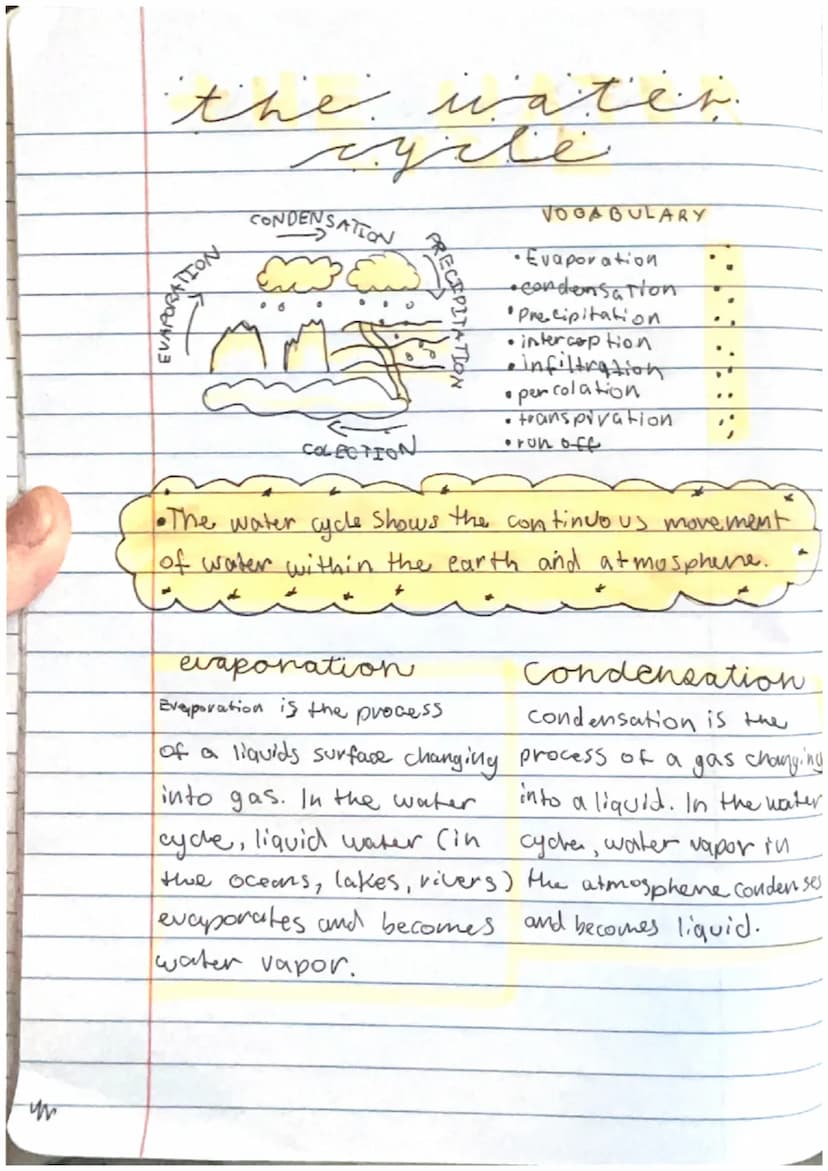 the water
cycle
CONDENSATION
EVAPORATION
PRECIPITATION
COLECTION
VOCABULARY
• Evaporation
• condensation
• Precipitation
• interception
• infiltration
• percolation
• transpiration
• run off
• The water cycle shows the continuous movement
of water within the earth and atmosphere.
evaporation
Evaporation is the process
of a liquids surface changing
into gas. In the water
cycle, liquid water (in
the oceans, lakes, rivers)
evaporates and becomes
water vapor.
Condensation
condensation is the
process of a gas changing
into a liquid. In the water
cycle, water vapor in
the atmosphere condenses
and becomes liquid.